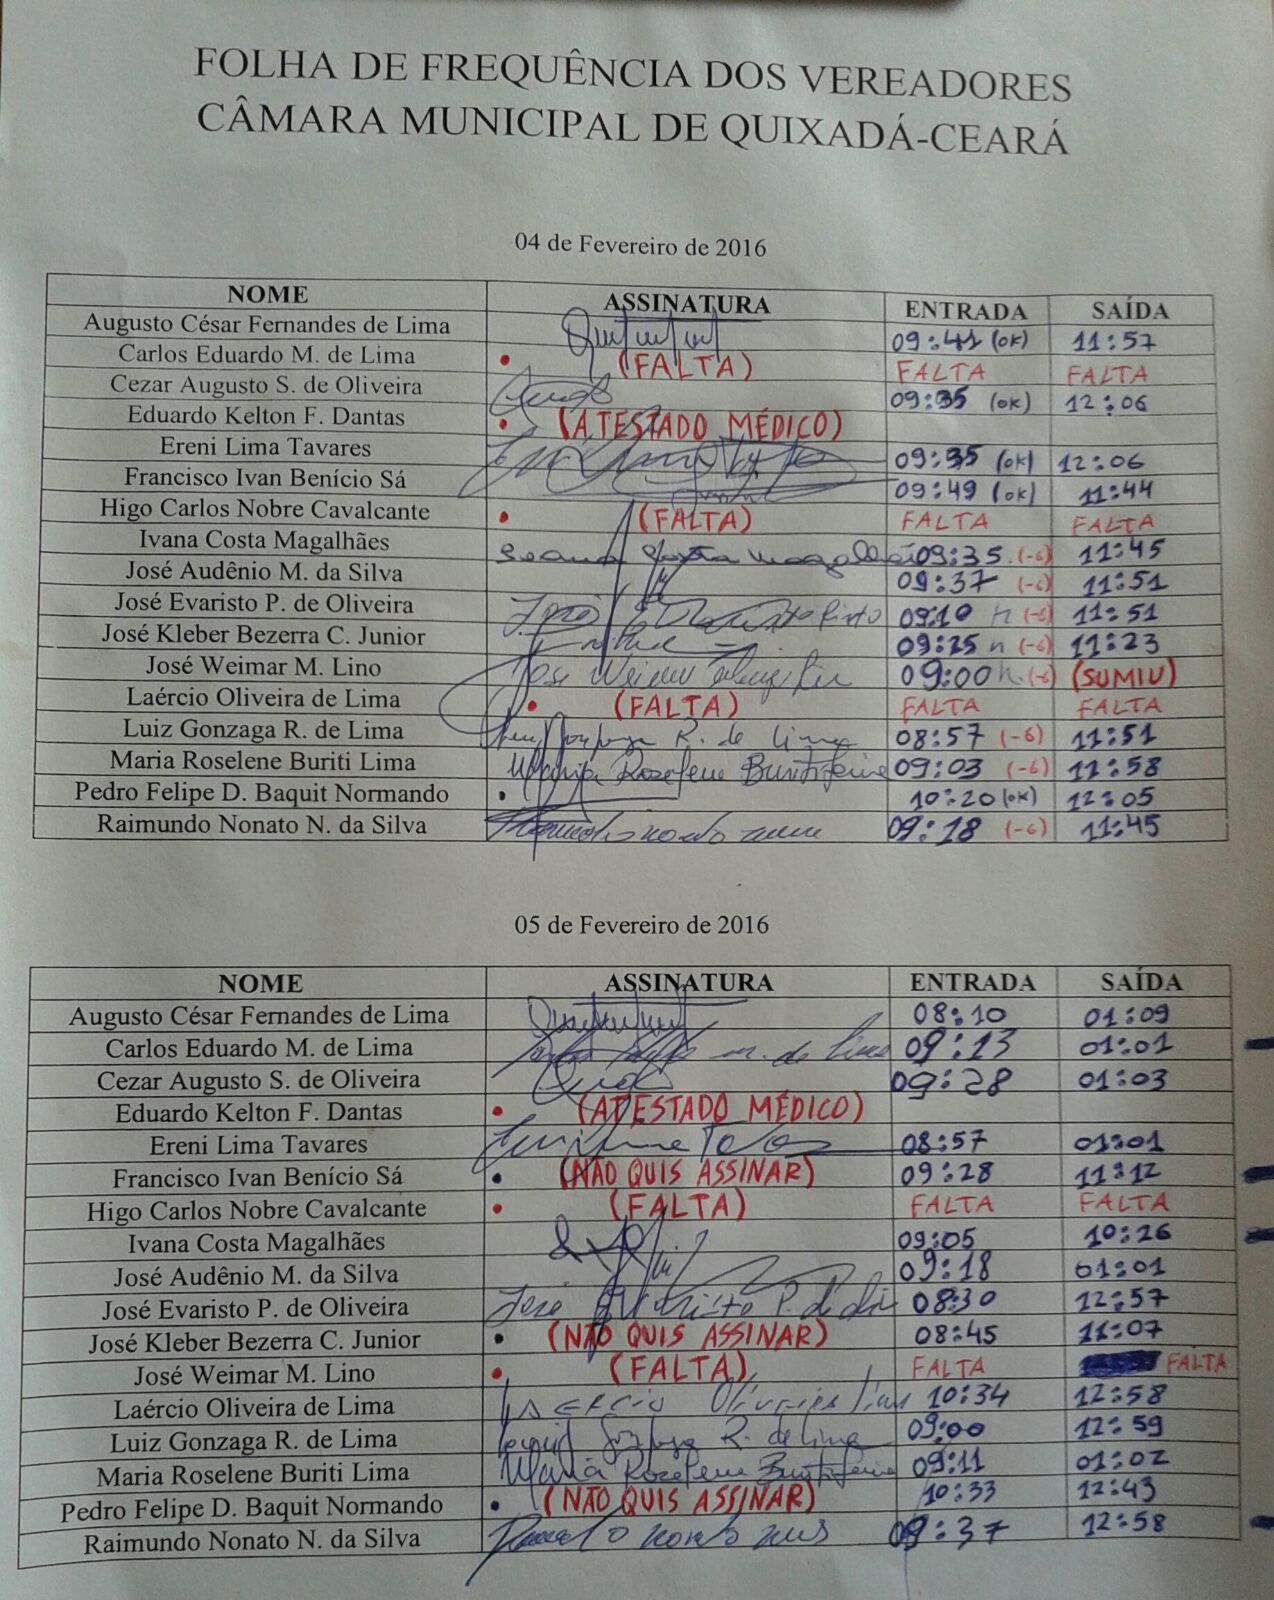 FOLHA DE FREQUÊNCIA DOS VEREADORES
CÂMARA MUNICIPAL DE QUIXADÁ-CEARÁ
04 de Fevereiro de 2016
NOME ASSINATURA ENTRADA SAÍDA
Augusto César Fernandes de Lima 09:41 (ok) 11:57
Carlos Eduardo M. de Lima • (FALTA) FALTA FALTA
Cezar Augusto S. de Oliveira 09:35 (ok) 12:06
Eduardo Kelton F. Dantas • (ATESTADO MÉDICO)
Ereni Lima Tavares 09:35 (ok) 12:06
Francisco Ivan Benício Sá 09:49 (ok) 11:44
Higo Carlos Nobre Cavalcante • (FALTA) FALTA FALTA
Ivana Costa Magalhães 09:35 (-6) 11:45
José Audênio M. da Silva 09:37 (-6) 11:51
José Evaristo P. de Oliveira 09:10 h (-6) 11:51
José Kleber Bezerra C. Junior 09:25 h (-6) 11:23
José Weimar M. Lino 09:00 h. (-6) (SUMIU)
Laércio Oliveira de Lima • (FALTA) FALTA FALTA
Luiz Gonzaga R. de Lima R. de Lima 08:57 (-6) 11:51
Maria Roselene Buriti Lima 09:03 (-6) 11:58
Pedro Felipe D. Baquit Normando • 10:20 (ok) 12:05
Raimundo Nonato N. da Silva 09:18 (-6) 11:45
05 de Fevereiro de 2016
NOME ASSINATURA ENTRADA SAÍDA
Augusto César Fernandes de Lima 08:10 01:09
Carlos Eduardo M. de Lima m. de Lima 09:13 01:01
Cezar Augusto S. de Oliveira 09:28 01:03
Eduardo Kelton F. Dantas • (ATESTADO MÉDICO)
Ereni Lima Tavares 08:57 01:01
Francisco Ivan Benício Sá • (NÃO QUIS ASSINAR) 09:28 11:12
Higo Carlos Nobre Cavalcante • (FALTA) FALTA FALTA
Ivana Costa Magalhães 09:05 10:26
José Audênio M. da Silva 09:18 01:01
José Evaristo P. de Oliveira José 08:30 12:57
José Kleber Bezerra C. Junior • (NÃO QUIS ASSINAR) 08:45 11:07
José Weimar M. Lino • (FALTA) FALTA FALTA
Laércio Oliveira de Lima 10:34 12:58
Luiz Gonzaga R. de Lima R. de Lima 09:00 12:59
Maria Roselene Buriti Lima Maria 09:11 01:02
Pedro Felipe D. Baquit Normando • (NÃO QUIS ASSINAR) 10:33 12:43
Raimundo Nonato N. da Silva 09:37 12:58